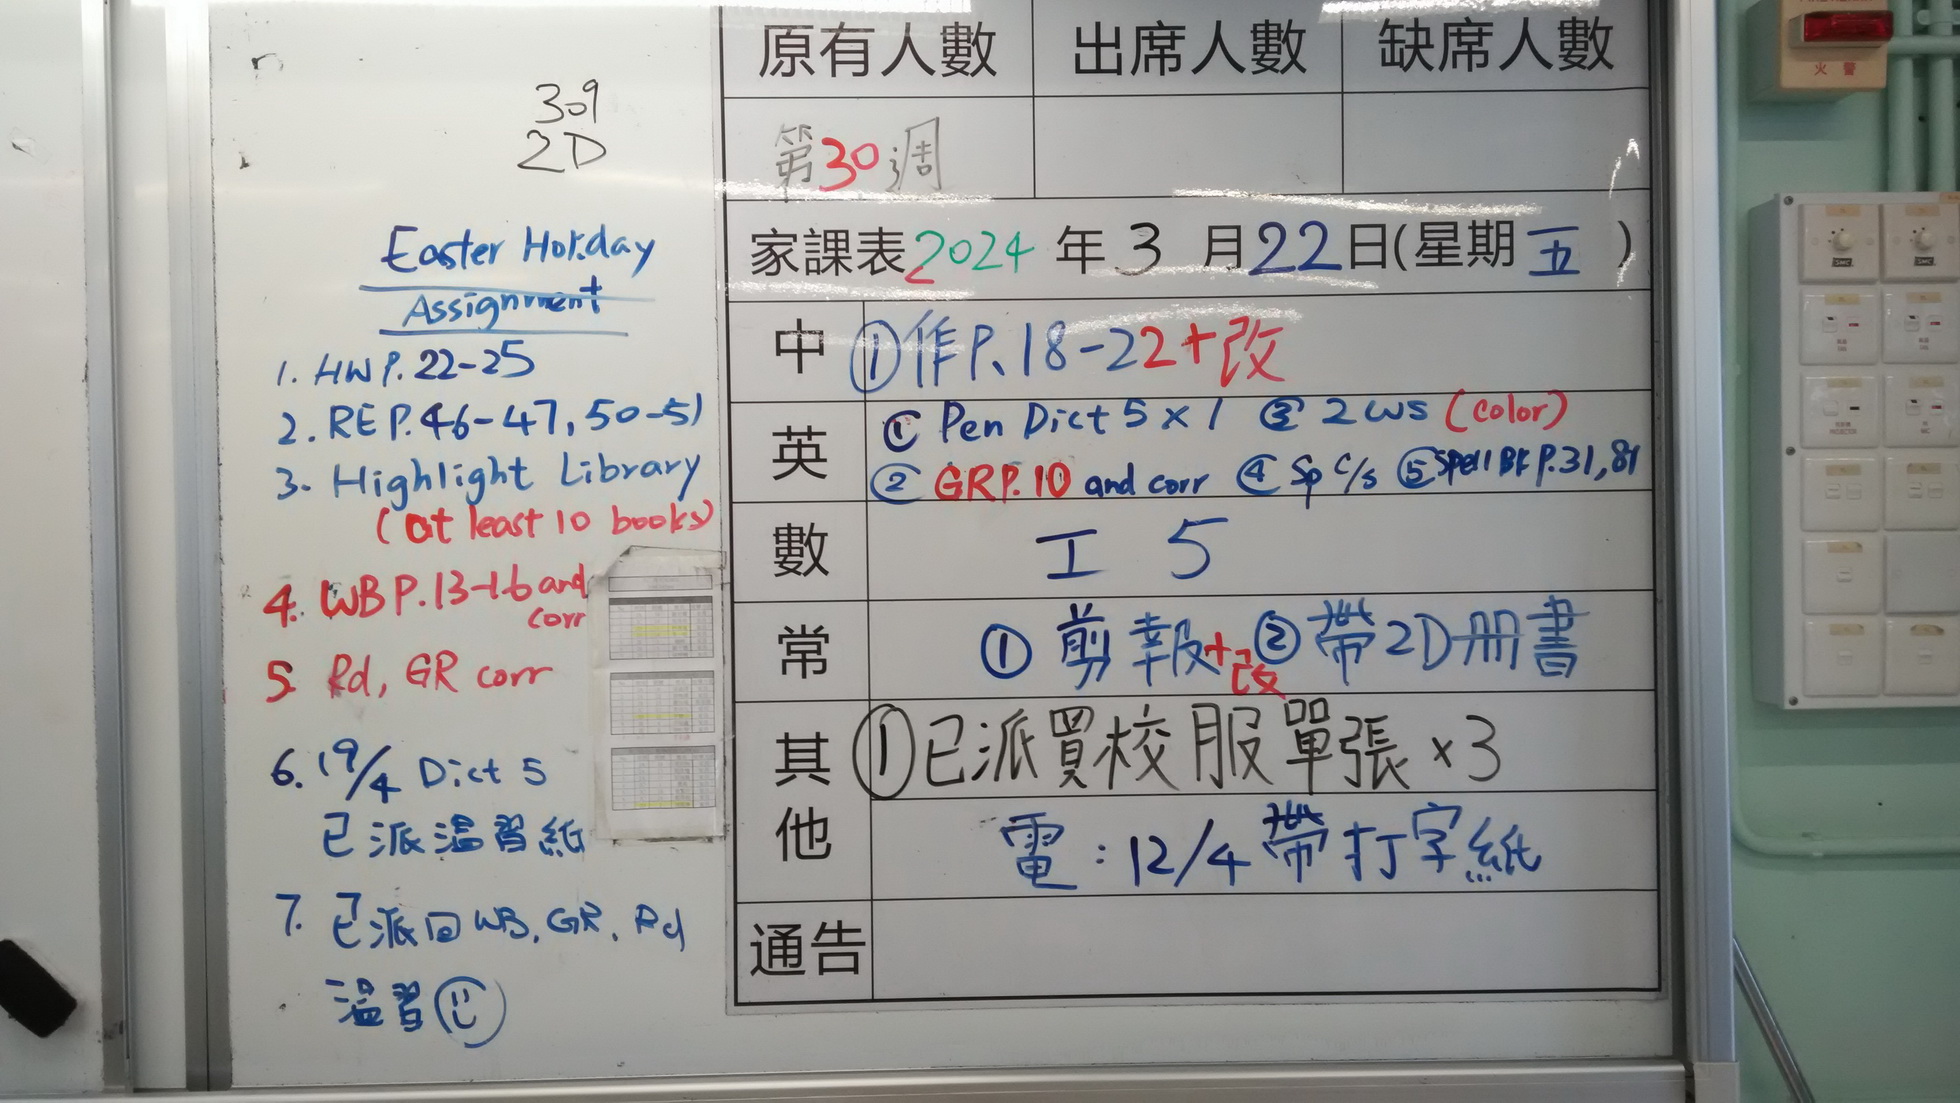 309
2D
Easter Holiday
Assignment
1. HW P. 22-25
2. RE P. 46-47, 50-51
3. Highlight Library
(at least 10 books)
4. WB P. 13-16 and
corr
5. Rd, GR corr
6. 19/4 Dict 5
已派溫習紙
7. 已派回 WB, GR, Rd
溫習
原有人數 出席人數 缺席人數
第30週
家課表2024年3月22日(星期五)
中 ①作P.18-22+改
英 ① Pen Dict 5 x 1 ③ 2 WS (color)
② GR P.10 and corr ④ Sp c/s ⑤ Spell BK P.31, 81
數 工 5
常 ① 剪報+改 ② 帶2D册書
其他 ①已派買校服單張 x3
電：12/4 帶打字紙
通告
火警